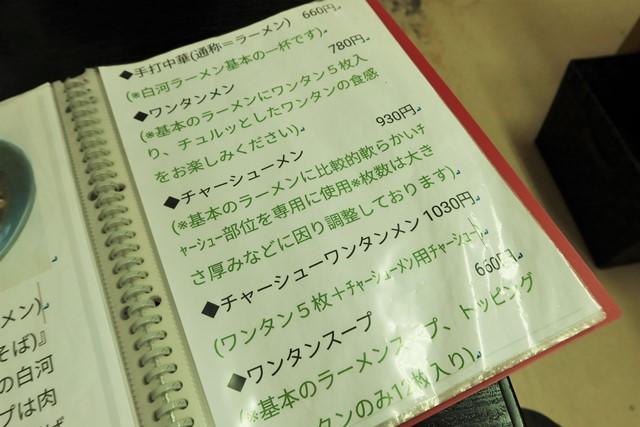 ◆手打中華(通称＝ラーメン) 660円
(※白河ラーメン基本の一杯です)
◆ワンタンメン 780円
(※基本のラーメンにワンタン５枚入
り、チュルッとしたワンタンの食感
をお楽しみください)
◆チャーシューメン 930円
(※基本のラーメンに比較的軟らかいﾁ
ｬｰｼｭｰ部位を専用に使用※枚数は大き
さ厚みなどに因り調整しております)
◆チャーシューワンタンメン 1030円
(ワンタン５枚＋ﾁｬｰｼｭｰﾒﾝ用ﾁｬｰｼｭｰ)
◆ワンタンスープ 660円
(※基本のラーメンスープ、トッピング
タンのみ12枚入り)
メン)
そば)』
の白河
プは肉